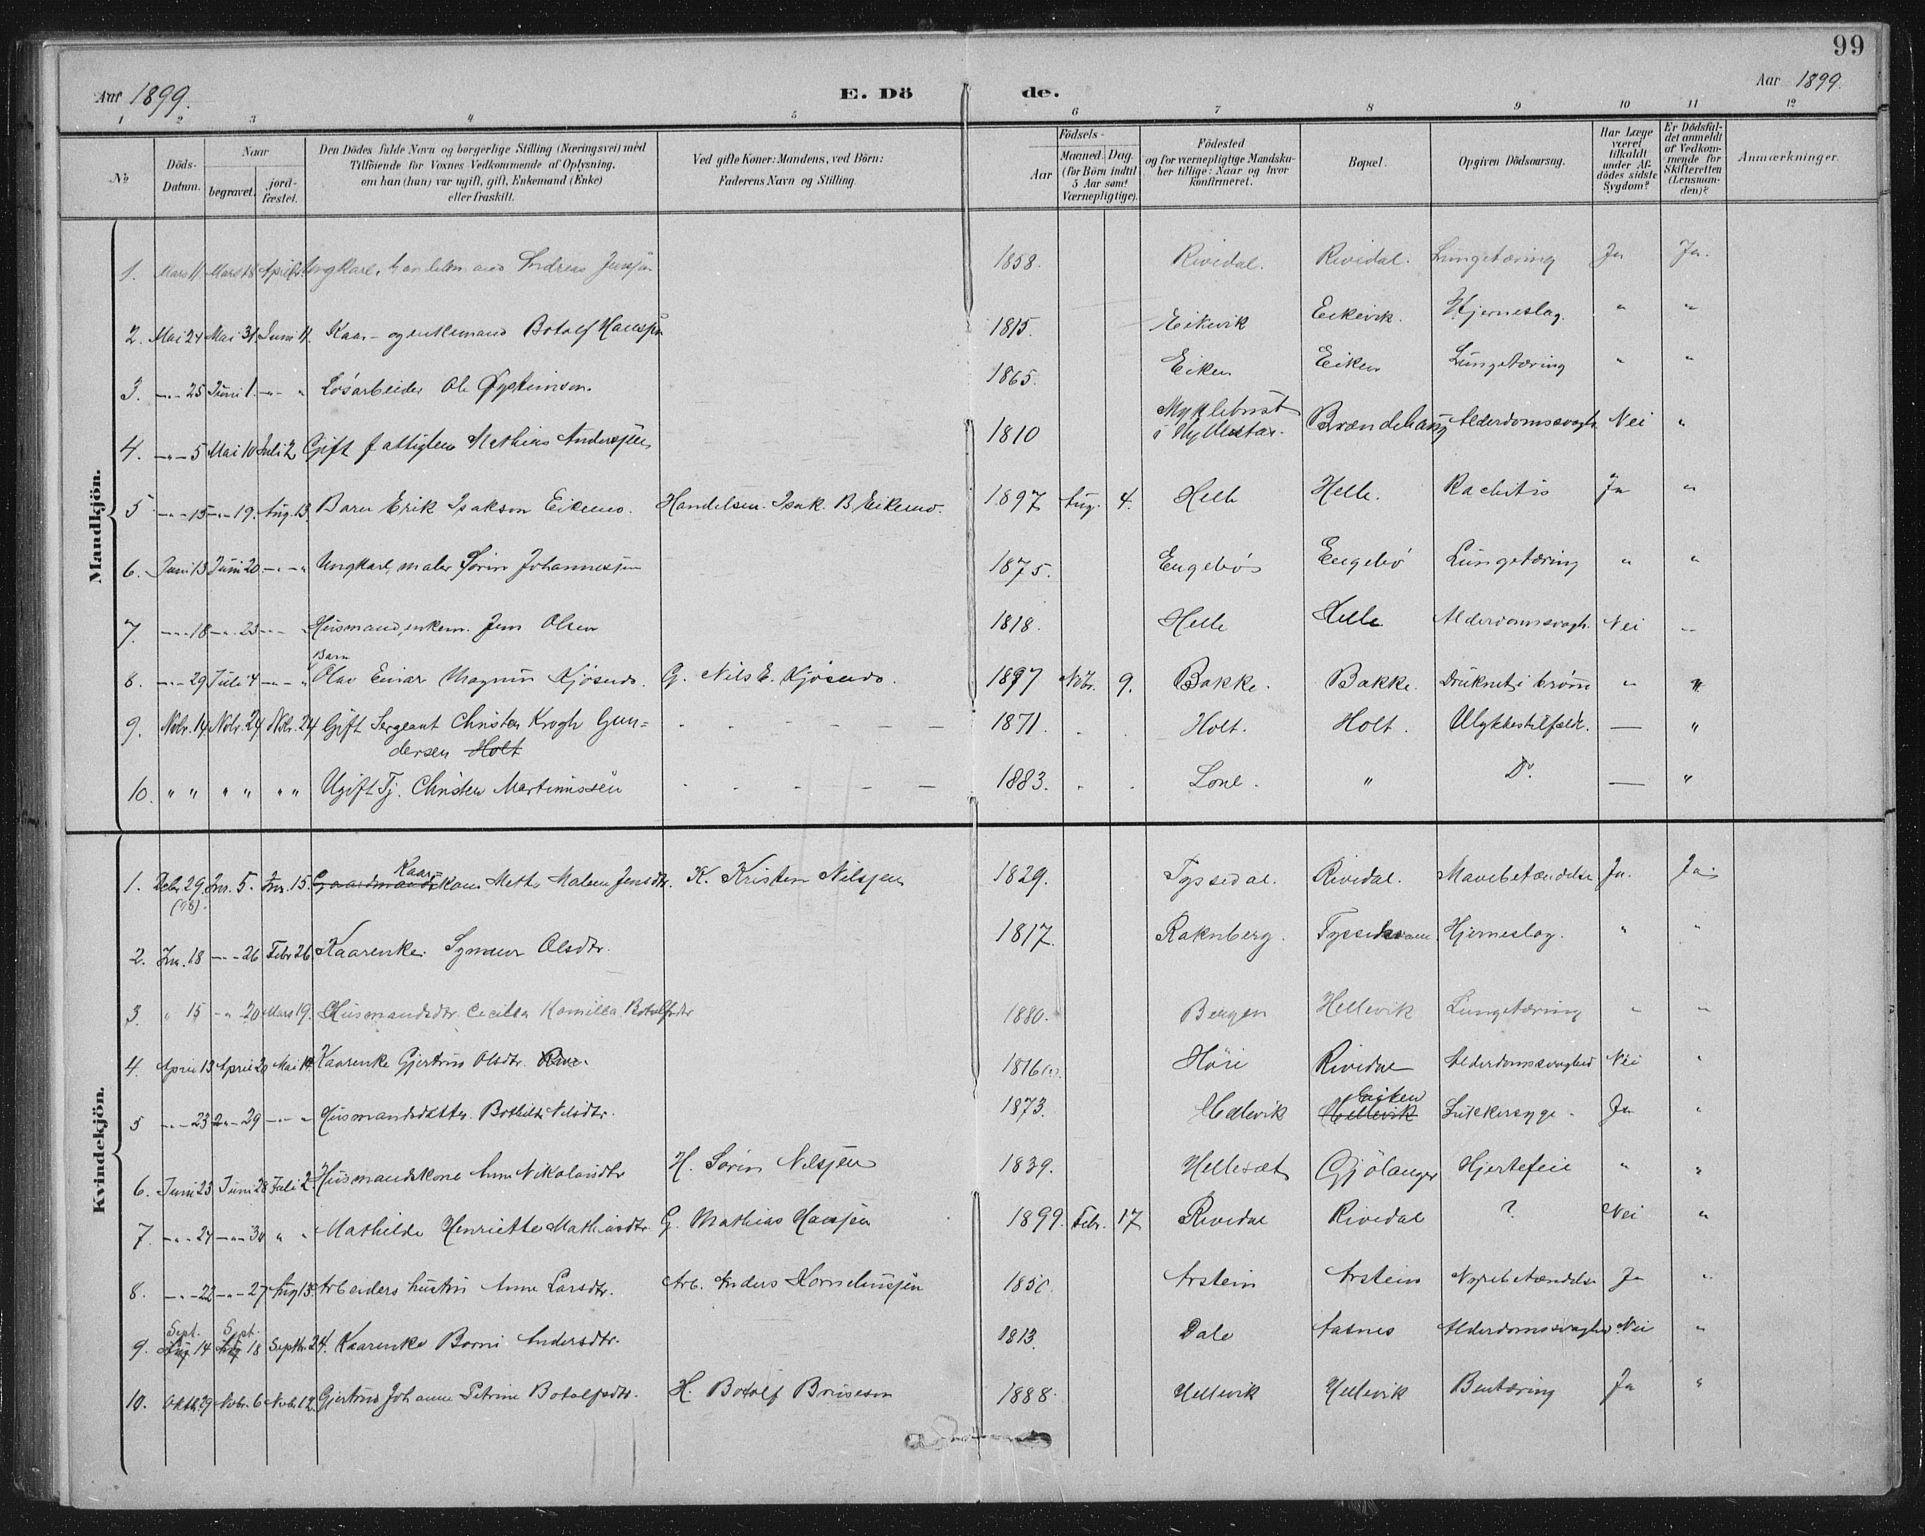 99
Aar 1899.
E. Dö
de.
Aar 1899.
1 2 3 4 5 6 7 8 9 10 11 12
No
Döds-
Datum.
Naar
begravet.
jord-
fæstet.
Den Dödes fulde Navn og borgerlige Stilling (Næringsvei) med
Tilföiende for Voxnes Vedkommende af Oplysning,
om han (hun) var ugift, gift, Enkemand (Enke)
eller fraskilt.
Ved gifte Koner: Mandens, ved Börn:
Faderens Navn og Stilling.
Födsels-
Aar
Maaned. Dag.
(for Börn indtil
5 Aar samt
Værnepligtige).
Födested
og for værnepligtige Mandska-
ber tillige: Naar og hvor
konfirmeret.
Bopæl.
Opgiven Dödsaarsag.
Har Læge
været
tilkaldt
under Af-
dödes sidste
Sygdom?
Er Dödsfal-
det anmeldt
af Vedkom-
mende for
Skifteretten
(Lensman-
den)?
Anmærkninger.
Mandkjön.
1. Mars 11 Mars 18 April Ungkarl, Andreas Jensen 1858. Rivedal. Rivedal. Lungetæring Ja Ja.
2. Mai 24 Mai 31 Juni 11. Kaar- og enkemand Botolf Hansen 1815. Eikevik Eikevik. Hjerneslag. " "
3. -"- 25 Juni 1. -"- " Løsarbeider Ole Øysteinson. 1865. Eiken Eiken Lungetæring " "
4. -"- 5 Mai 10 Juli 2 Gift fattiglem Mathias Andersen 1810 Myklebust i Hyllestad. Brændehaug Alderdomssvagh. Nei "
5 -"- 15 -"- 19. Aug. 13. Barn Erik Isakson Eikemo. Handelsm. Isak B. Eikemo. 1897 Aug. 4. Helle Helle. Rachitis Ja "
6. Juni 13 Juni 20 -"- " Ungkarl, maler Sørin Johannesen 1875. Engebø Engebø Lungetæring " "
7. -"- 18 -"- 23 -"- " Husmand, enkem. Jens Olsen 1818. Helle Helle Alderdomssvagh. Nei -"-
8. -"- 29 Juli 4 -"- " Barn Olav Einar Magnus Kjøsnes. G. Nils E. Kjøsnes. 1897 Nobr. 9. Bakke. Bakke. Druknet i brønn " "
9. Nobr. 14 Nobr. 24 Nobr. 24 Gift Sergeant Christen Krogh Gun-
dersen Holt - - - - - - 1871. . . Holt. Holt. Ulykkestilfælde. — "
10. " " " " " " Ugift Tj. Christen Martinussen - - - - - 1883. . . Lone. " Do. — "
Kvindekjön.
1. Debr. 29 (98). Jan. 5. Jan. 15. Gaardmands Kaarkone Mette Malene Jensdtr. K. Kristen Nilsen 1829. Tyssedal. Rivedal. Mavebetændelse Ja. Ja.
2. Jan. 18 -"- 26 Febr 26 Kaarenke. Synneve Olsdtr. 1817. Raknberg. Hjerneslag. " "
3. " 15 -"- 20 Mars 19. Husmandsdtr. Cecilia Kamilla Botolfsdtr 1880. Bergen Hellevik Lungetæring " "
4. April 13 April 20 Mai 14 Kaarenke Gjertrud Olsdtr. 1816 Rivedal Alderdomssvaghed Nei "
5 -"- 23 -"- 29 -"- " Husmandsdatter Bothilde Nilsdtr. 1873. Hellevik Hellevik Eiken Sukkersyge. Ja "
6. Juni 23 Juni 28 Juli 2. Husmandskone Anne Nikolaidtr. H. Sørin Nilsen 1839. Hellesæt Gjølanger Hjertefeil " "
7. -"- 24 -"- 30 " " Mathilde Henriette Mathiasdtr. G. Mathias Hansen 1899. Febr. 17 Rivedal Rivedal ? Nei "
8. -"- 22 -"- 27 Aug 13. Arbeiders hustru Anne Larsdtr. Arb. Anders Kornelinssen Arstein Arstein Nyrebetændelse Ja "
9. Aug Sept. 14 Aug Sept. 18 Septbr 24. Kaarenke Borni Andersdtr. 1813. Dale Aasnes Alderdomssvaghed Nei "
10. Oktbr 29 Nobr. 6 Nobr. 12. Gjertrud Johanne Petrine Botolfsdtr. H. Botolf Bruseson 1888. Hellevik Hellevik Bentæring Ja "